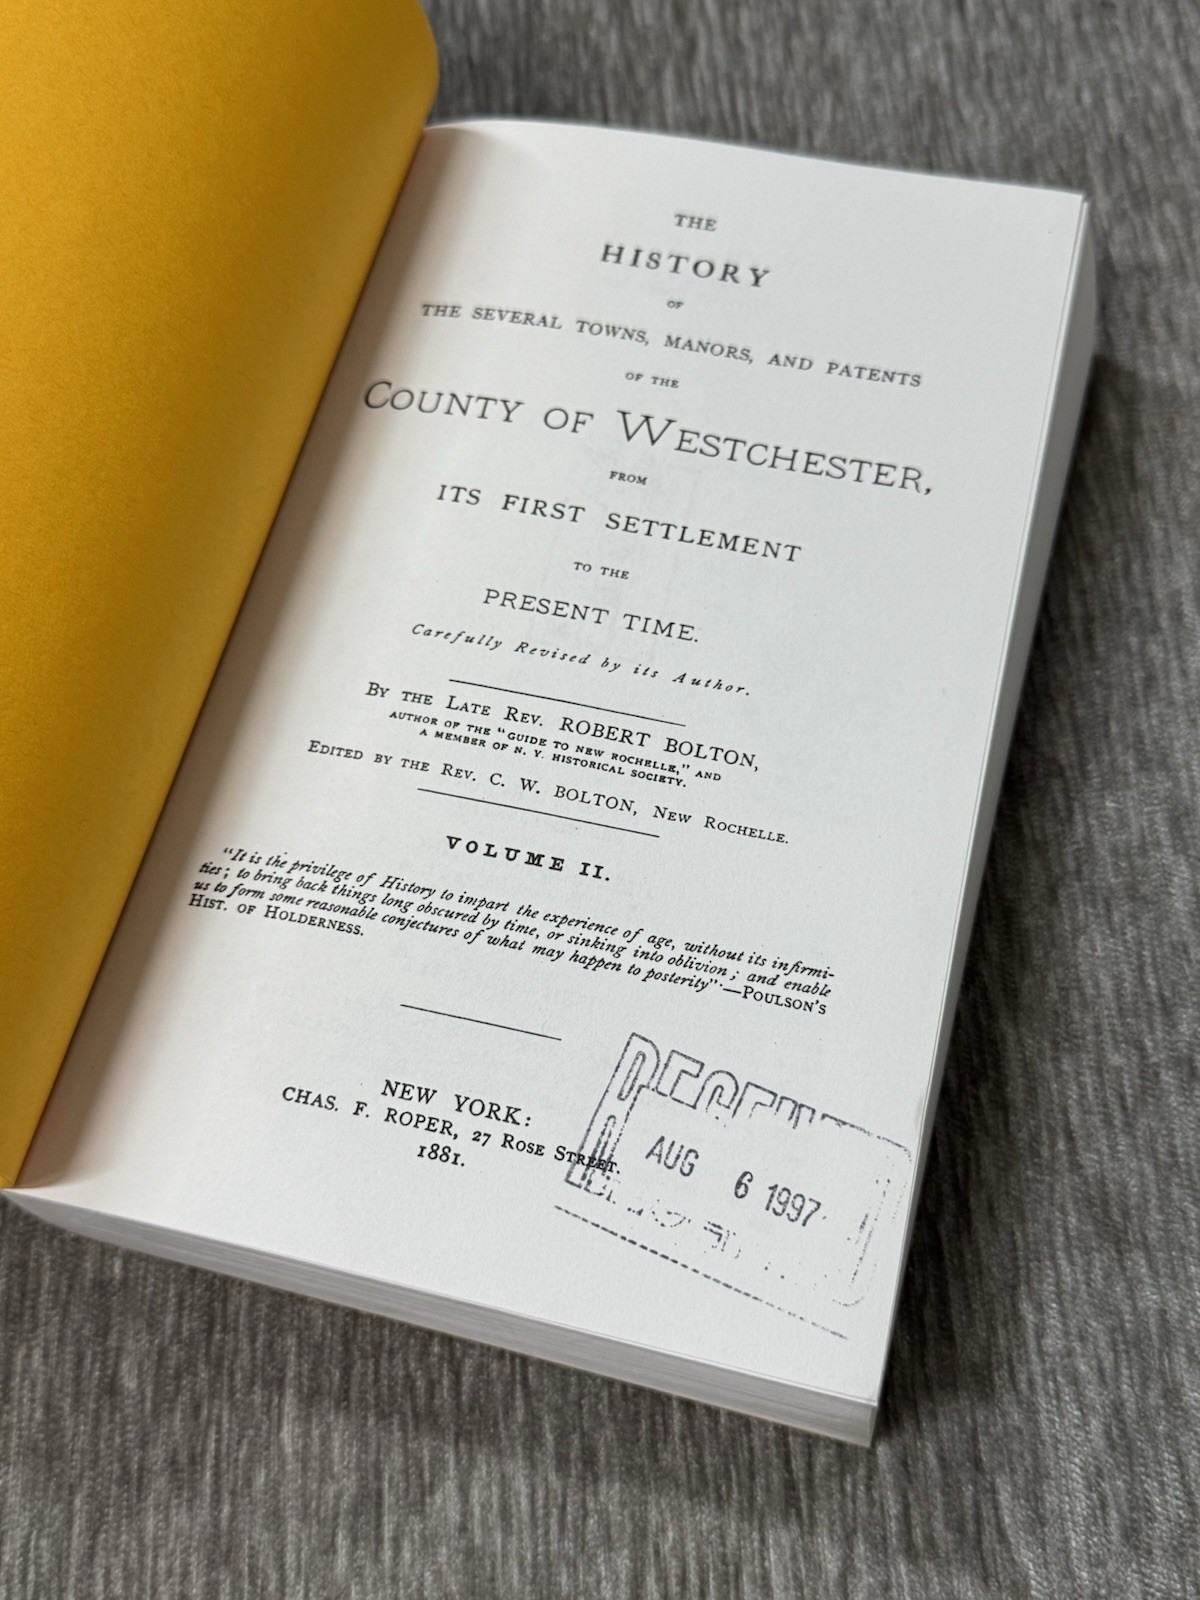 THE
HISTORY
OF
THE SEVERAL TOWNS, MANORS, AND PATENTS
OF THE
COUNTY OF WESTCHESTER,
FROM
ITS FIRST SETTLEMENT
TO THE
PRESENT TIME.
Carefully Revised by its Author.
BY THE LATE REV. ROBERT BOLTON,
AUTHOR OF THE "GUIDE TO NEW ROCHELLE," AND
A MEMBER OF N. Y. HISTORICAL SOCIETY.
EDITED BY THE REV. C. W. BOLTON, NEW ROCHELLE.
VOLUME II.
"It is the privilege of History to impart the experience of age, without its infirmi-
ties; to bring back things long obscured by time, or sinking into oblivion; and enable
us to form some reasonable conjectures of what may happen to posterity"—POULSON'S
HIST. OF HOLDERNESS.
NEW YORK:
CHAS. F. ROPER, 27 ROSE STREET.
1881.
RECEIVED
AUG 6 1997